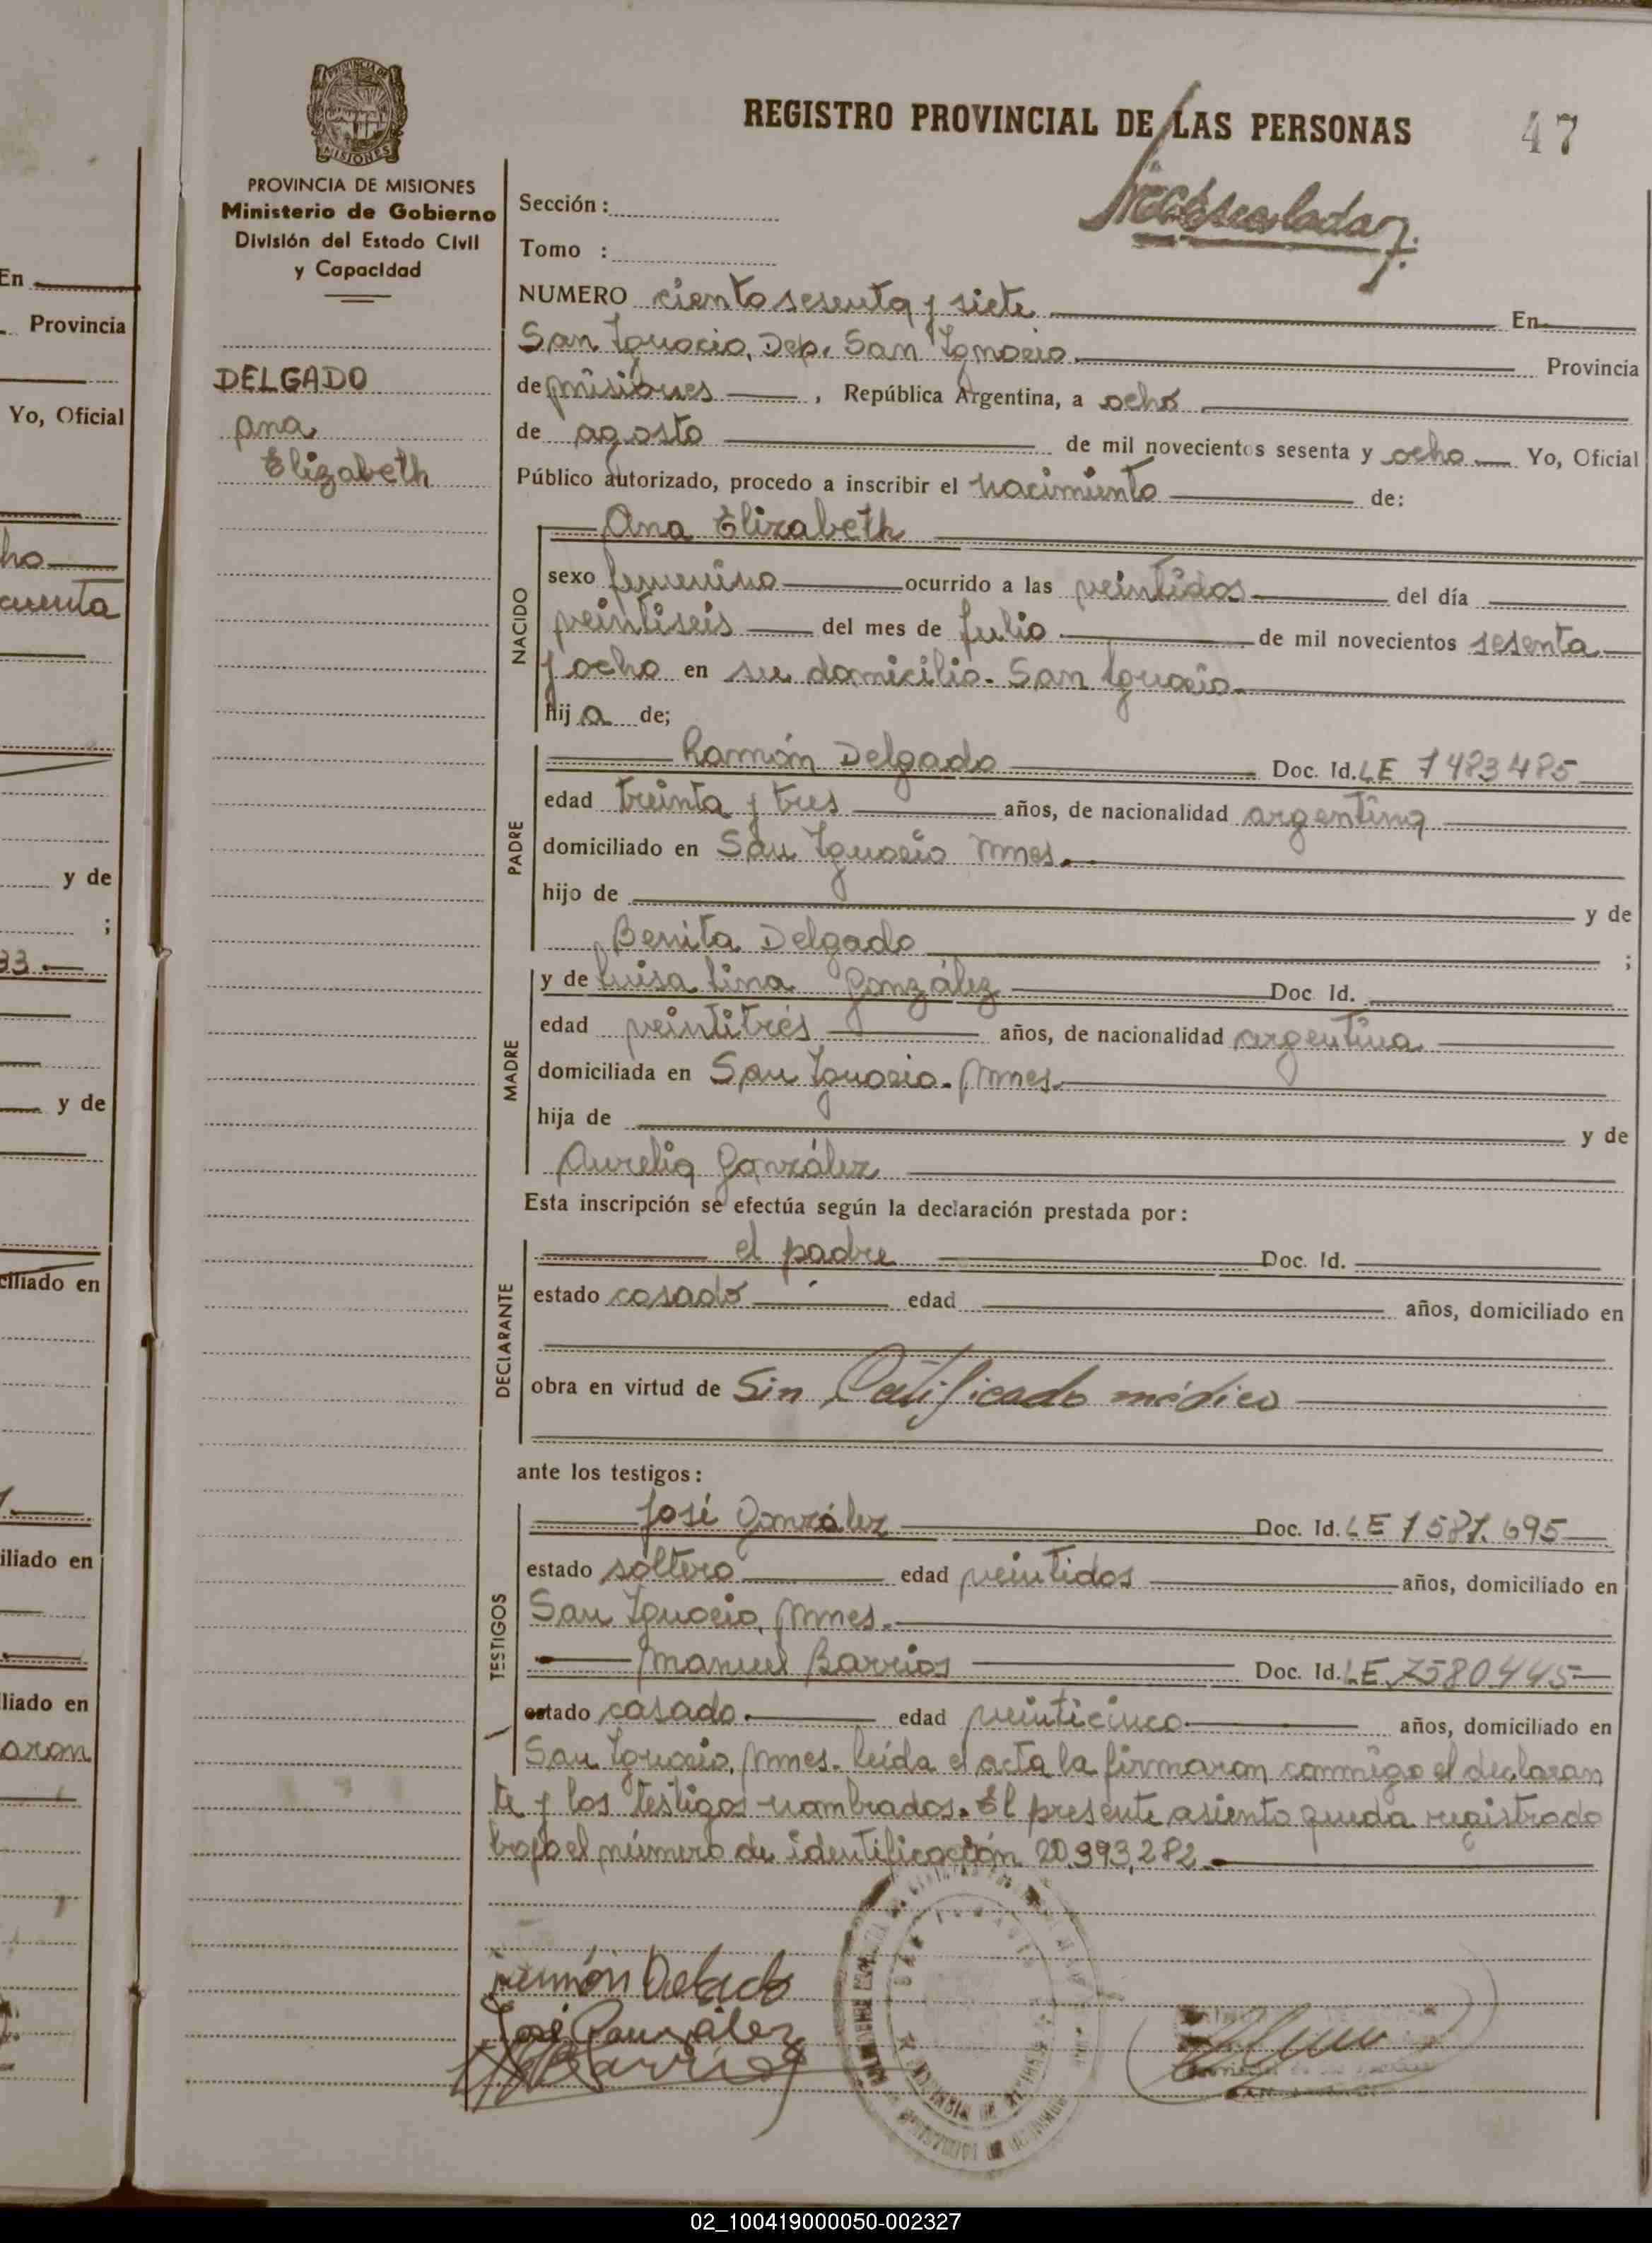 En
Provincia
Yo, Oficial
ho
cuenta
y de
;
33
y de
ciliado en
iliado en
liado en
aron
PROVINCIA DE
MISIONES
PROVINCIA DE MISIONES
Ministerio de Gobierno
División del Estado Civil
y Capacidad
DELGADO
Ana
Elizabeth
REGISTRO PROVINCIAL DE LAS PERSONAS
47
Sección:
Tomo :
NUMERO ciento sesenta y siete En
San Ignacio, Dep. San Ignacio. Provincia
de Misiones, República Argentina, a ocho
de agosto de mil novecientos sesenta y ocho Yo, Oficial
Público autorizado, procedo a inscribir el nacimiento de:
NACIDO
Ana Elizabeth
sexo femenino ocurrido a las veintidos del día
veintiseis del mes de Julio de mil novecientos sesenta
y ocho en su domicilio. San Ignacio.
hija de;
PADRE
Ramón Delgado Doc. Id. LE 7483485
edad treinta y tres años, de nacionalidad argentina
domiciliado en San Ignacio Mnes.
hijo de y de
Benita Delgado ;
MADRE
y de Luisa Lina González Doc. Id.
edad veintitrés años, de nacionalidad argentina
domiciliada en San Ignacio. Mnes.
hija de y de
Aurelia González
Esta inscripción se efectúa según la declaración prestada por:
DECLARANTE
el padre Doc. Id.
estado casado edad años, domiciliado en
obra en virtud de Sin Certificado médico
ante los testigos:
TESTIGOS
José González Doc. Id. LE 7587.695
estado soltero edad veintidos años, domiciliado en
San Ignacio, Mnes.
Manuel Barrios Doc. Id. LE 7580445
estado casado. edad veinticinco años, domiciliado en
San Ignacio, Mnes. Leída el acta la firmaron conmigo el declaran
te y los testigos nombrados. El presente asiento queda registrado
bajo el número de identificación 20,393,282.
Ramón Delgado
José González
Barrios
02_100419000050-002327